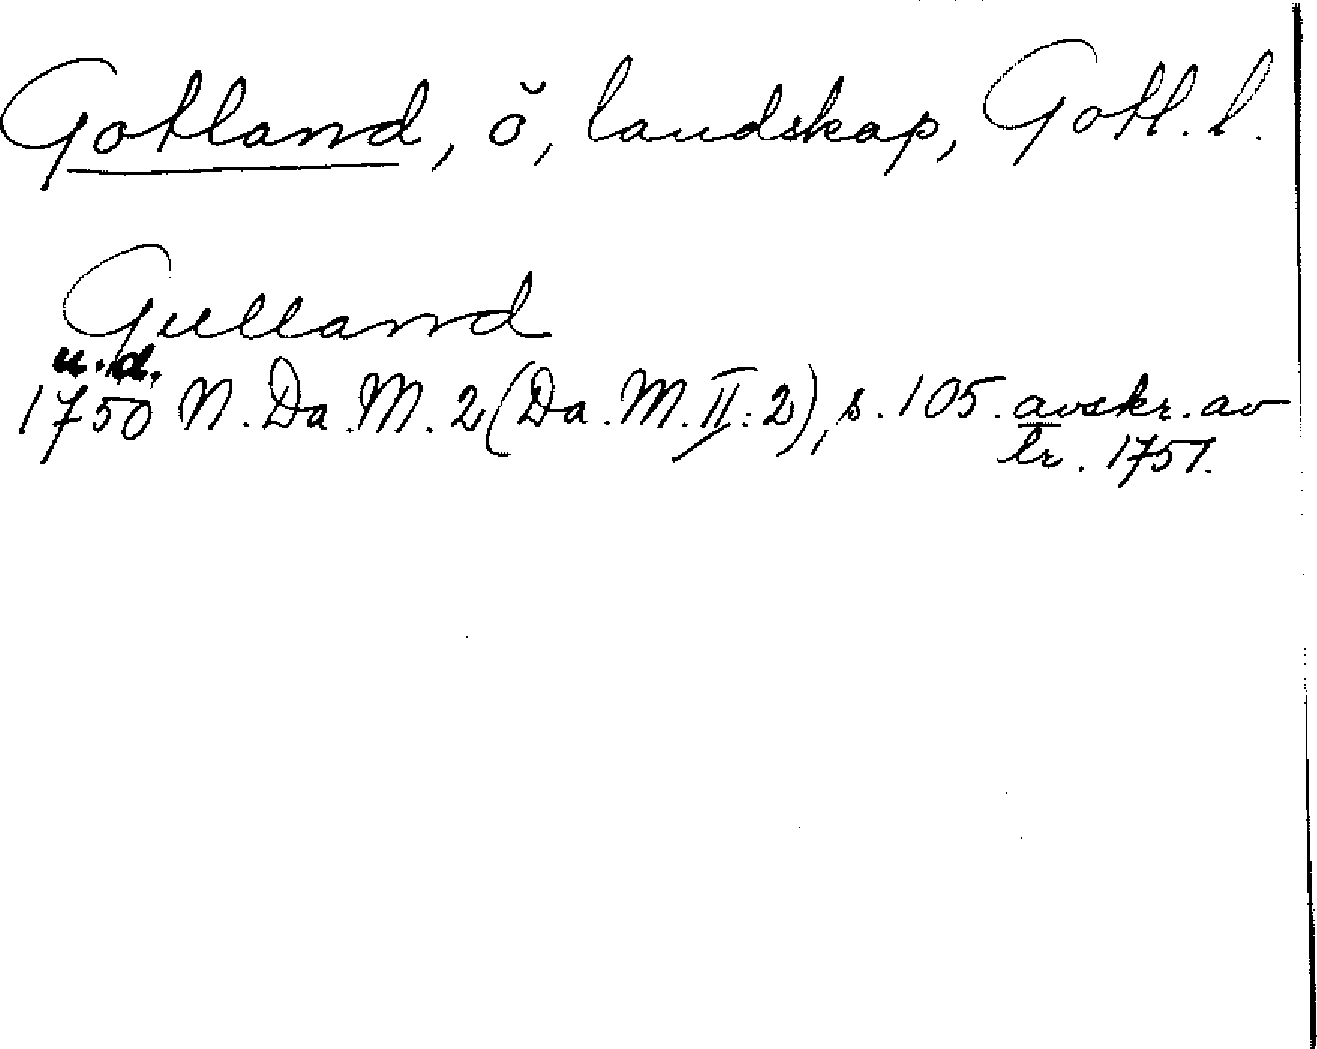 Gotland, ö, landskap, Gotl. l.
Gulland
u. d.
1750 N. Da. M. 2 (Da. M. II: 2), s. 105. avskr. av
br. 1751.